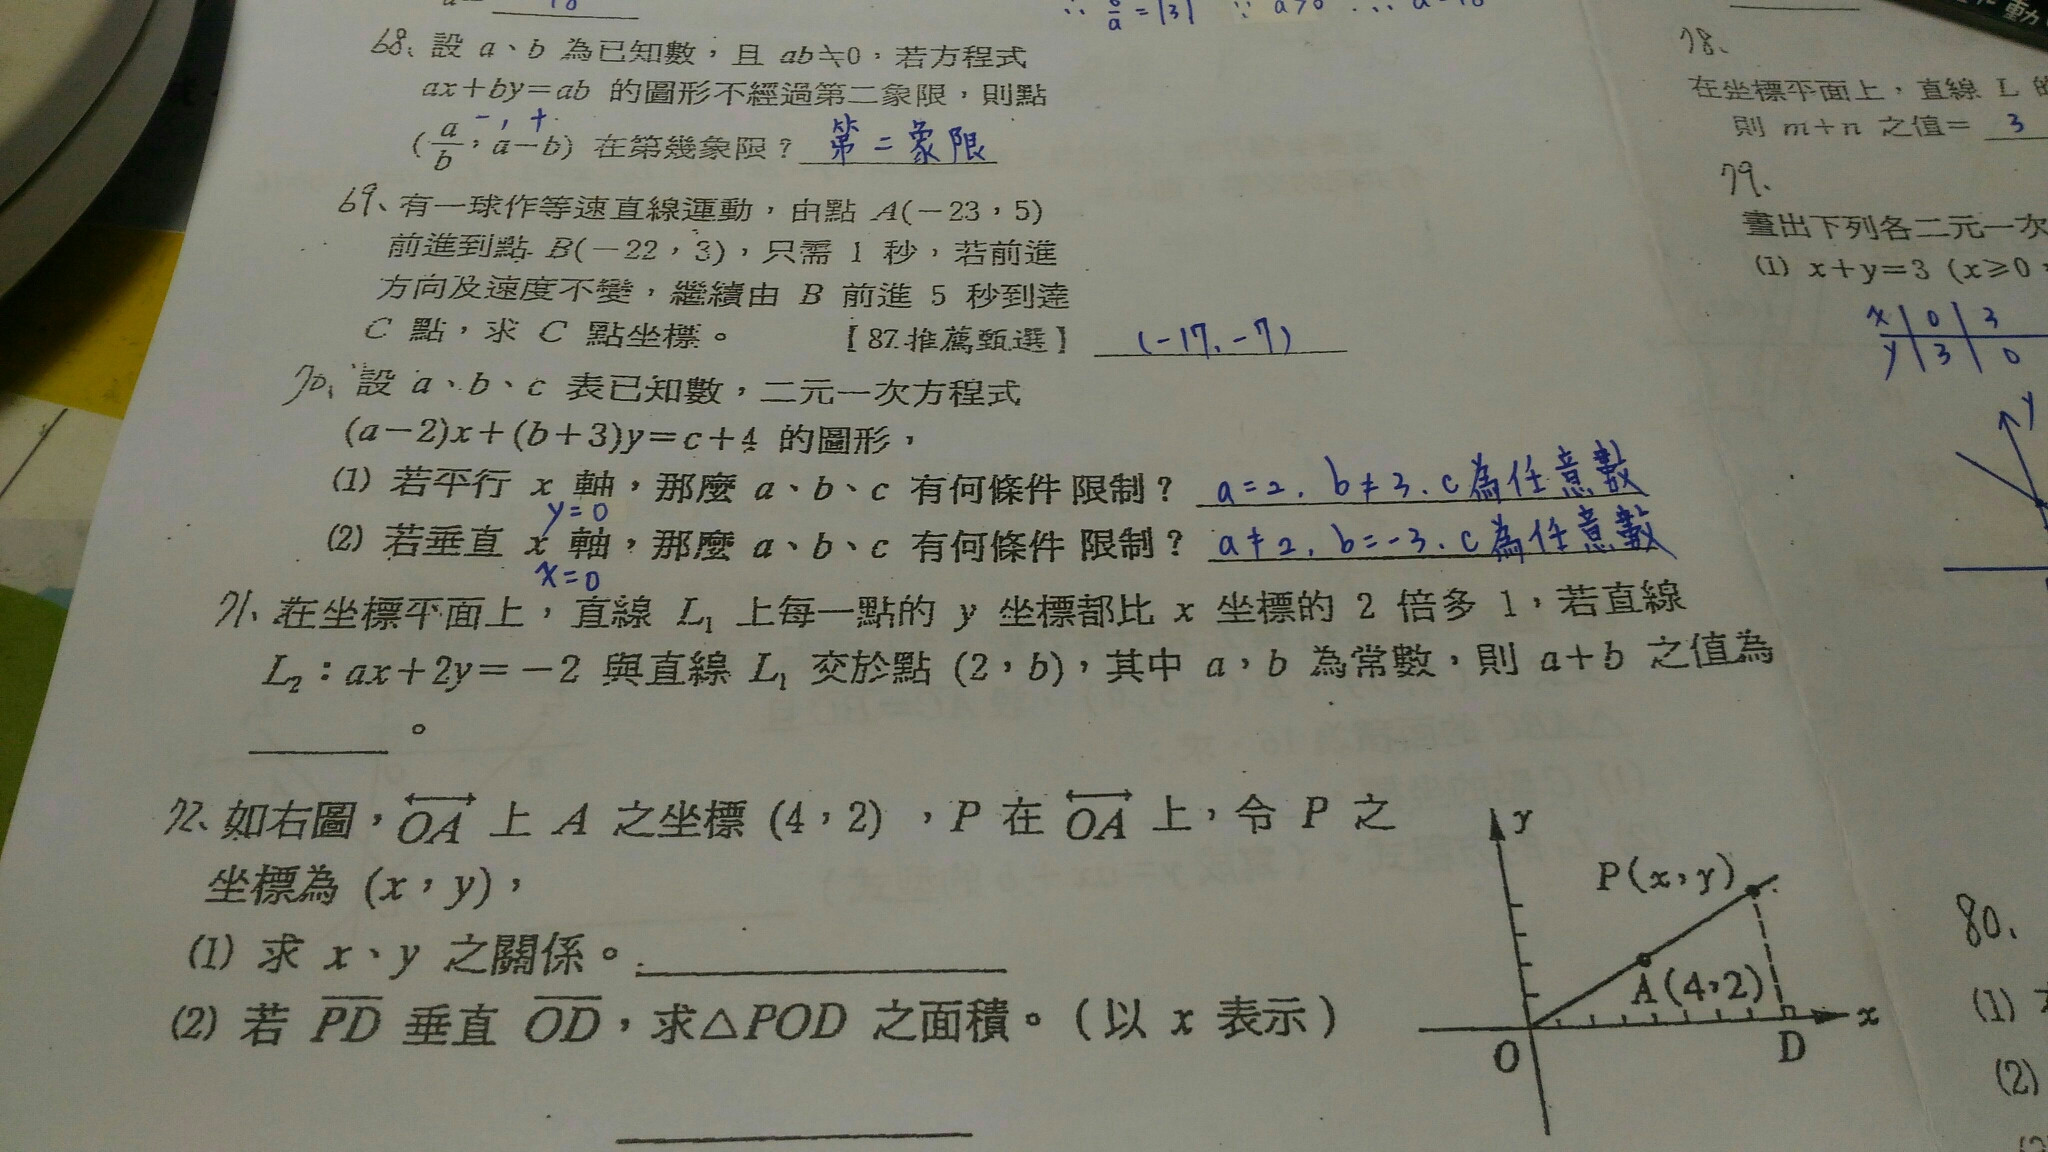 68、設 a、b 為已知數，且 ab≒0，若方程式
ax+by=ab 的圖形不經過第二象限，則點
-，+
(a/b，a-b) 在第幾象限？ 第二象限
69、有一球作等速直線運動，由點 A(-23，5)
前進到點 B(-22，3)，只需 1 秒，若前進
方向及速度不變，繼續由 B 前進 5 秒到達
C 點，求 C 點坐標。 【87.推薦甄選】 (-17、-7)
70、設 a、b、c 表已知數，二元一次方程式
(a-2)x+(b+3)y=c+4 的圖形，
(1) 若平行 x 軸，那麼 a、b、c 有何條件限制？ a=2、b≠3、c為任意數
y=0
(2) 若垂直 x 軸，那麼 a、b、c 有何條件限制？ a≠2、b=-3、c為任意數
x=0
71、在坐標平面上，直線 L₁ 上每一點的 y 坐標都比 x 坐標的 2 倍多 1，若直線
L₂：ax+2y=-2 與直線 L₁ 交於點 (2，b)，其中 a，b 為常數，則 a+b 之值為
。
72、如右圖，OA 上 A 之坐標 (4，2)，P 在 OA 上，令 P 之
坐標為 (x，y)，
(1) 求 x、y 之關係。
(2) 若 PD 垂直 OD，求△POD 之面積。（以 x 表示）
y
P(x，y)
A(4，2)
x
O
D
78、
在坐標平面上，直線 L
則 m+n 之值= 3
79、
畫出下列各二元一次
(1) x+y=3 (x≥0
x 0 3
y 3 0
y
80、
(1)
(2)